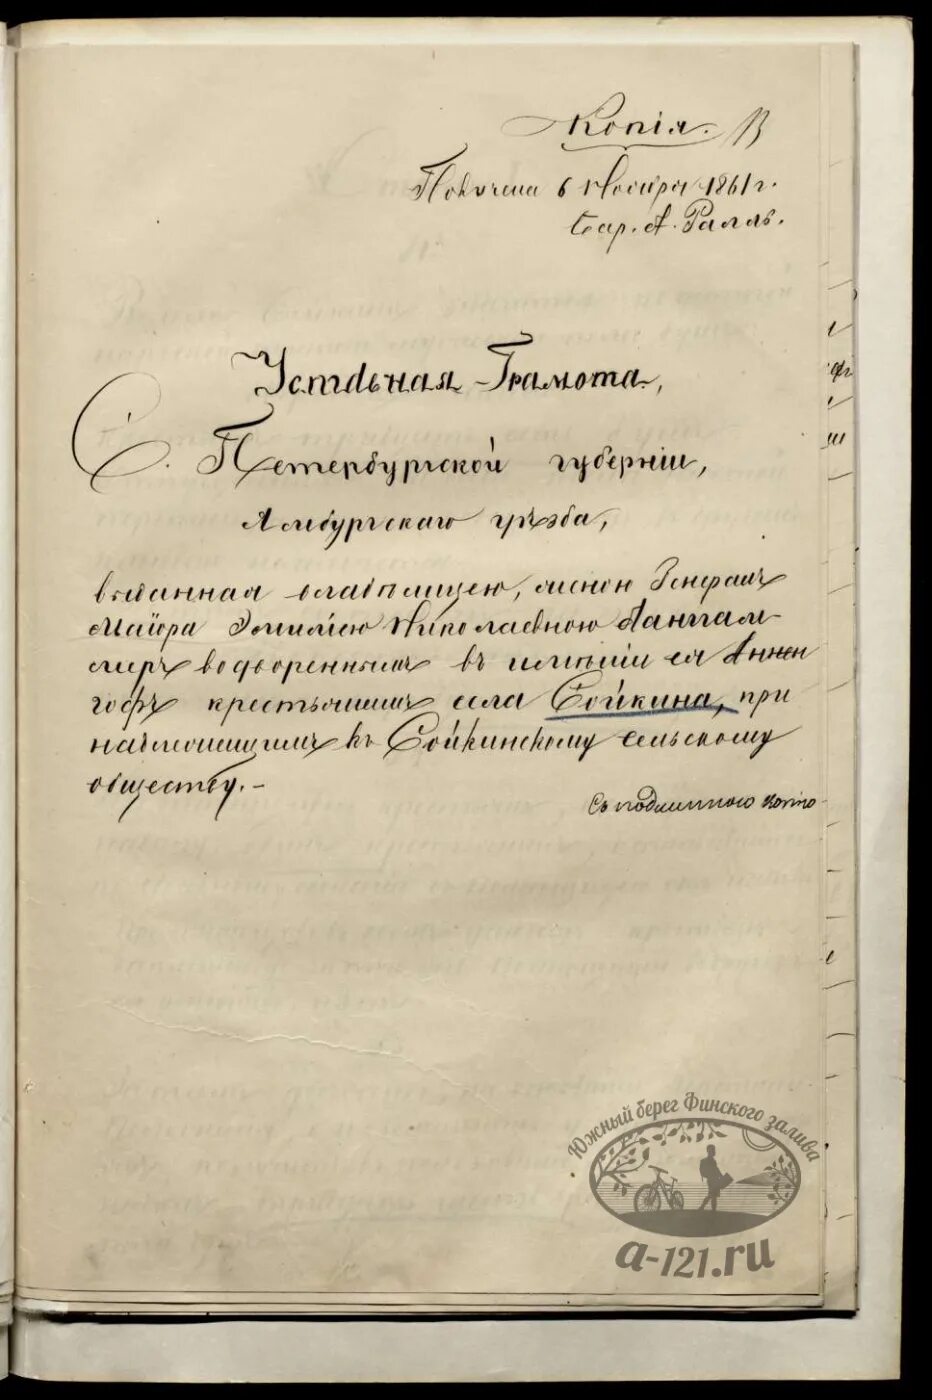 Копія.
Получена 6 Ноября 1861 г.
Бар. А. Ралль.
Уставная Грамота,
С. Петербургской губерніи,
Ямбургскаго уѣзда,
выданная владѣлицею, женою Генералъ
Маіора Эмиліею Николаевною
водворенным въ имѣніи ея Аннен
гофъ крестьянамъ села Сойкина, при
надлежащимъ къ Сойкинскому сельскому
обществу.-
Съ подлинною
Южный берег Финского залива
a-121.ru